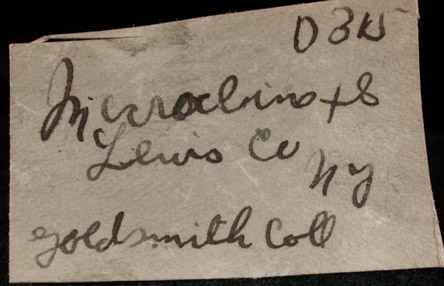 D 315
Microcline xls
Lewis Co
NY
Goldsmith Coll